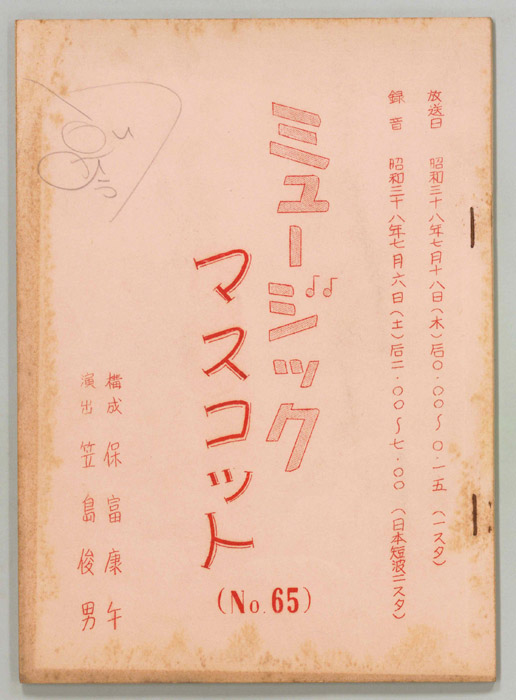 放送日 昭和三十八年七月十八日(木)后〇・〇〇〜〇・一五 (一スタ)
録音 昭和三十八年七月六日(土)后二・〇〇〜七・〇〇 (日本短波二スタ)
ミュージック
マスコット
(No.65)
構成 保富康午
演出 笠島俊男